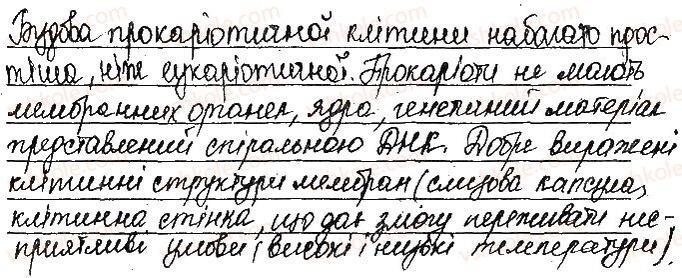 Будова прокаріотичної клітини набагато прос-
тіша, ніж еукаріотичної. Прокаріоти не мають
мембранних органел, ядра, генетичний матеріал
представлений спіральною ДНК. Добре виражені
клітинні структури мембран (слизова капсула,
клітинна стінка, що дає змогу переживати нес-
приятливі умови (високі і низькі температури).